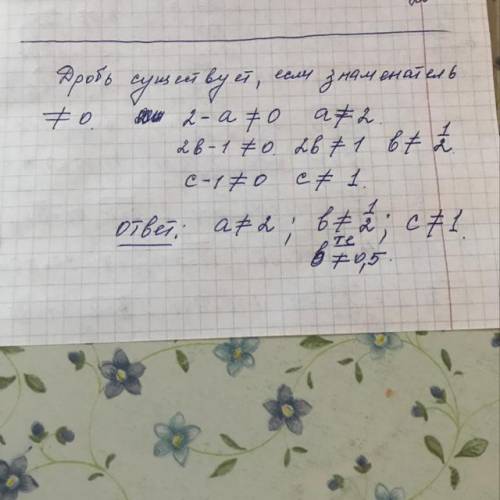 Дробь существует, если знаменатель
≠ 0. 2-а ≠ 0 а ≠ 2.
2в-1 ≠ 0 2в ≠ 1 в ≠ 1/2.
с-1 ≠ 0 с ≠ 1.
Ответ: а ≠ 2; в ≠ 1/2; с ≠ 1.
те
в ≠ 0,5.